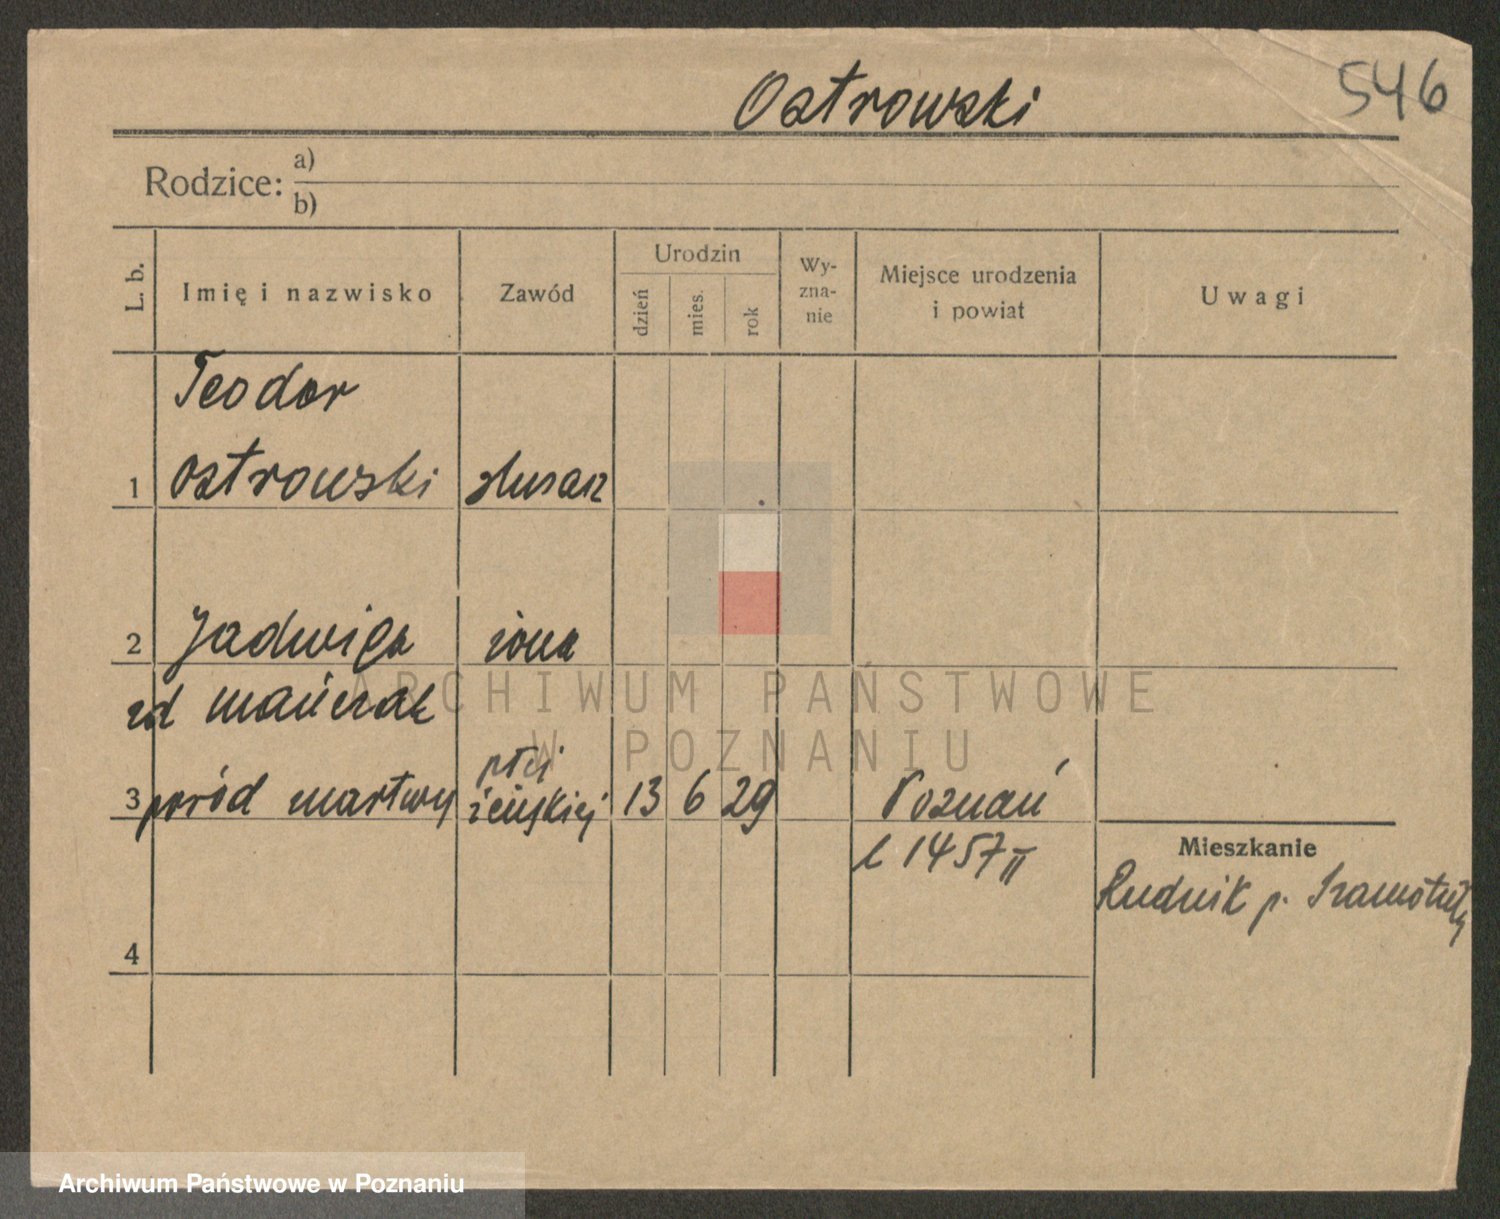 546
Ostrowski
Rodzice: a)
b)
L. b.
Imię i nazwisko
Zawód
Urodzin
dzień
mies.
rok
Wy-
zna-
nie
Miejsce urodzenia
i powiat
Uwagi
Teodor
1 Ostrowski ślusarz
2 Jadwiga żona
zd Mańczak
płci
3 poród martwy żeńskiej 13 6 29 Poznań
L 1457 II
Mieszkanie
Rudnik p. Szamotuły
4
ARCHIWUM PAŃSTWOWE
W POZNANIU
Archiwum Państwowe w Poznaniu